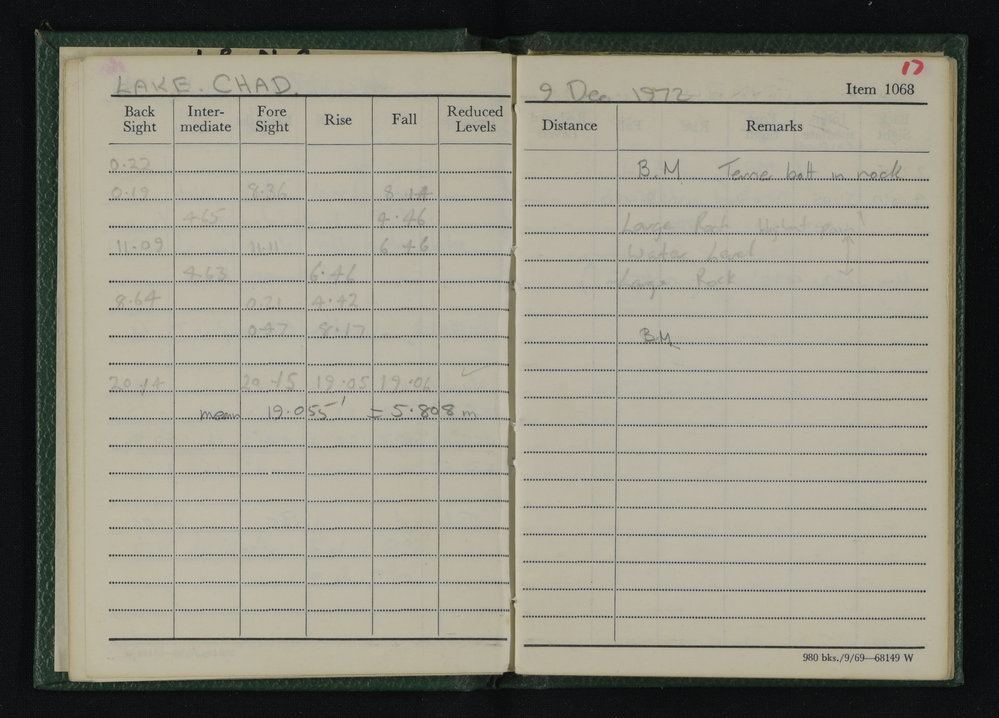 LAKE. CHAD.
Back Sight Inter-mediate Fore Sight Rise Fall Reduced Levels
0.22
0.19 8.36 8.14
4.65 4.46
11.09 11.11 6.46
4.63 6.46
8.64 0.21 4.42
0.47 8.17
20.14 20.15 19.05 19.06 ✓
mean 19.055' = 5.808 m
17
9 Dec 1972 Item 1068
Distance Remarks
B.M. bolt in rock
Large Rock
Water Level
Large Rock
B.M.
980 bks./9/69—68149 W